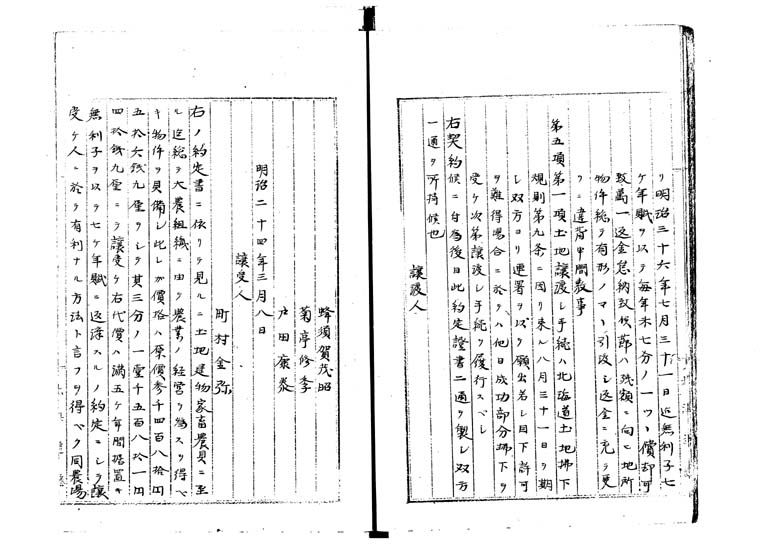 ヲ明治三十六年七月三十一日迄無利子七
ケ年賦ヲ以テ毎年末七分ノ一ツヽ償却可
致萬一返金怠納致候節ハ残額ニ向ヒ地所
物件総テ有形ノマヽ引渡シ返金ニ充テ更
ニ違背申間敷事
第五項第一項土地譲渡シ手続ハ北海道土地拂下
規則第九条ニ因リ来ル八月三十一日ヲ期
シ双方ヨリ連署ヲ以テ願出若シ目下許可
ヲ難得場合ニ於テハ他日成功部分拂下ヲ
受ケ次第譲渡シ手続ヲ履行スベシ
右契約候ニ付為後日此約定證書二通ヲ製シ双方
一通ヲ所持候也
譲渡人
蜂須賀茂韶
菊亭修季
戸田康泰
明治二十四年三月八日
譲受人
町村金弥
右ノ約定書ニ依リテ見ルニ土地建物家畜農具ニ至
ル迄総テ大農組織ニ由ル農業ノ経営ヲ為スヲ得ベ
キ物件ヲ具備シ此レガ價格ハ原價参千四百八拾円
五拾六銭九厘ニシテ其三分ノ一壹千五百八拾一円
四拾銭九厘ニテ譲受ケ右代價ハ満五ケ年間据置キ
無利子ヲ以テ七ケ年賦ニ返済スルノ約定ニシテ譲
受ケ人ニ於テ有利ナル方法ト言フヲ得ベク同農場